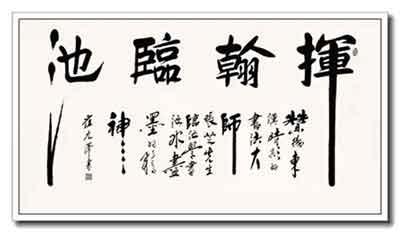 揮翰臨池
東
漢時期的
書法大
師
張芝先生
臨池學書
池水盡
墨的精
神……